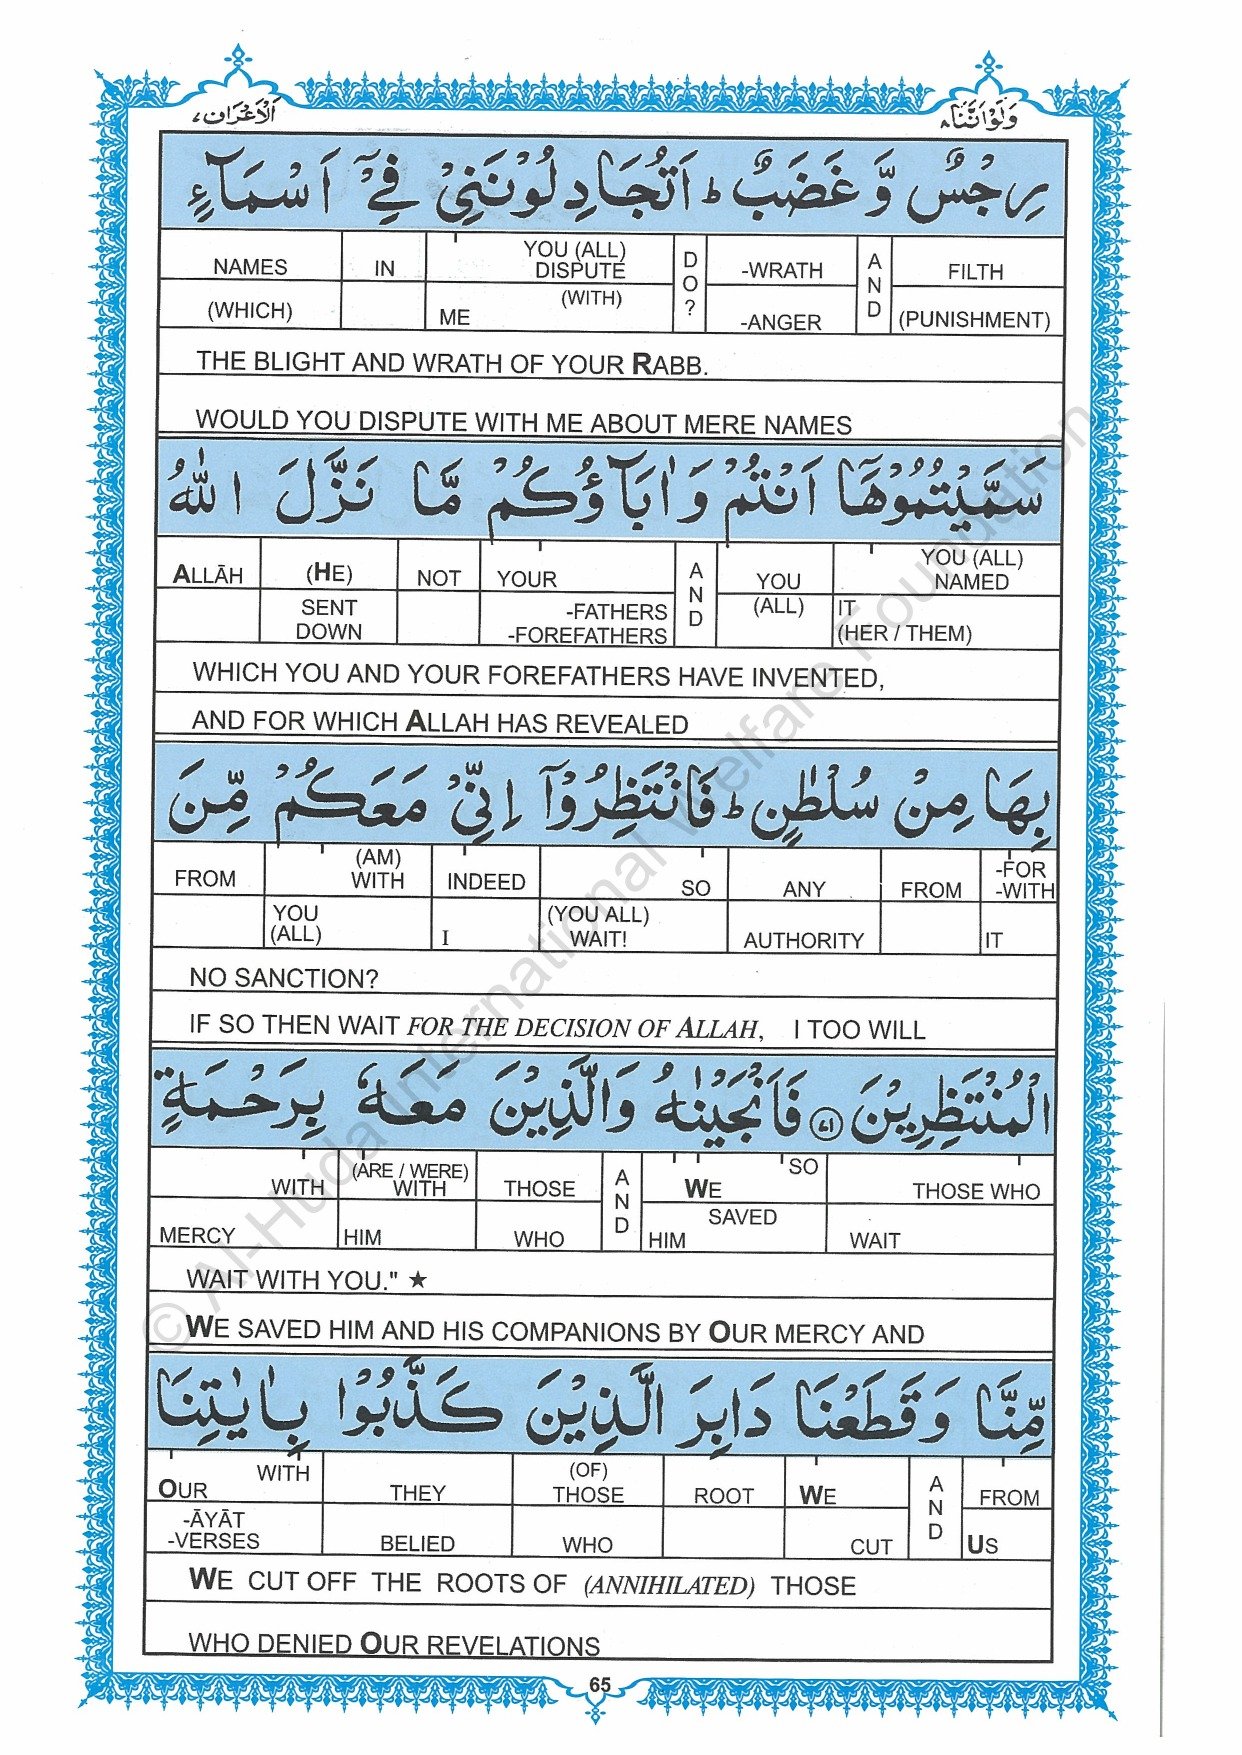 وَلَوْ اَنَّنَا ۸
اَلْاَعْرَاف ۷
رِجْسٌ وَّ غَضَبٌ ؕ اَتُجَادِلُوْنَنِيْ فِيْۤ اَسْمَآءٍ
NAMES IN YOU (ALL) DISPUTE DO? -WRATH AND FILTH
(WHICH) ME (WITH) -ANGER (PUNISHMENT)
THE BLIGHT AND WRATH OF YOUR RABB.
WOULD YOU DISPUTE WITH ME ABOUT MERE NAMES
سَمَّيْتُمُوْهَاۤ اَنْتُمْ وَ اٰبَآؤُكُمْ مَّا نَزَّلَ اللّٰهُ
ALLĀH (HE) NOT YOUR AND YOU YOU (ALL) NAMED
SENT DOWN -FATHERS -FOREFATHERS (ALL) IT (HER / THEM)
WHICH YOU AND YOUR FOREFATHERS HAVE INVENTED,
AND FOR WHICH ALLAH HAS REVEALED
بِهَا مِنْ سُلْطٰنٍ ؕ فَانْتَظِرُوْۤا اِنِّيْ مَعَكُمْ مِّنَ
FROM (AM) WITH INDEED SO ANY FROM -FOR -WITH
YOU (ALL) I (YOU ALL) WAIT! AUTHORITY IT
NO SANCTION?
IF SO THEN WAIT FOR THE DECISION OF ALLAH, I TOO WILL
الْمُنْتَظِرِيْنَ ۷۱ فَاَنْجَيْنٰهُ وَالَّذِيْنَ مَعَهٗ بِرَحْمَةٍ
WITH (ARE / WERE) WITH THOSE AND WE SO THOSE WHO
MERCY HIM WHO HIM SAVED WAIT
WAIT WITH YOU." ★
WE SAVED HIM AND HIS COMPANIONS BY OUR MERCY AND
مِّنَّا وَ قَطَعْنَا دَابِرَ الَّذِيْنَ كَذَّبُوْا بِاٰيٰتِنَا
OUR WITH THEY (OF) THOSE ROOT WE AND FROM
-ĀYĀT -VERSES BELIED WHO CUT US
WE CUT OFF THE ROOTS OF (ANNIHILATED) THOSE
WHO DENIED OUR REVELATIONS
65
© Al-Huda International Welfare Foundation